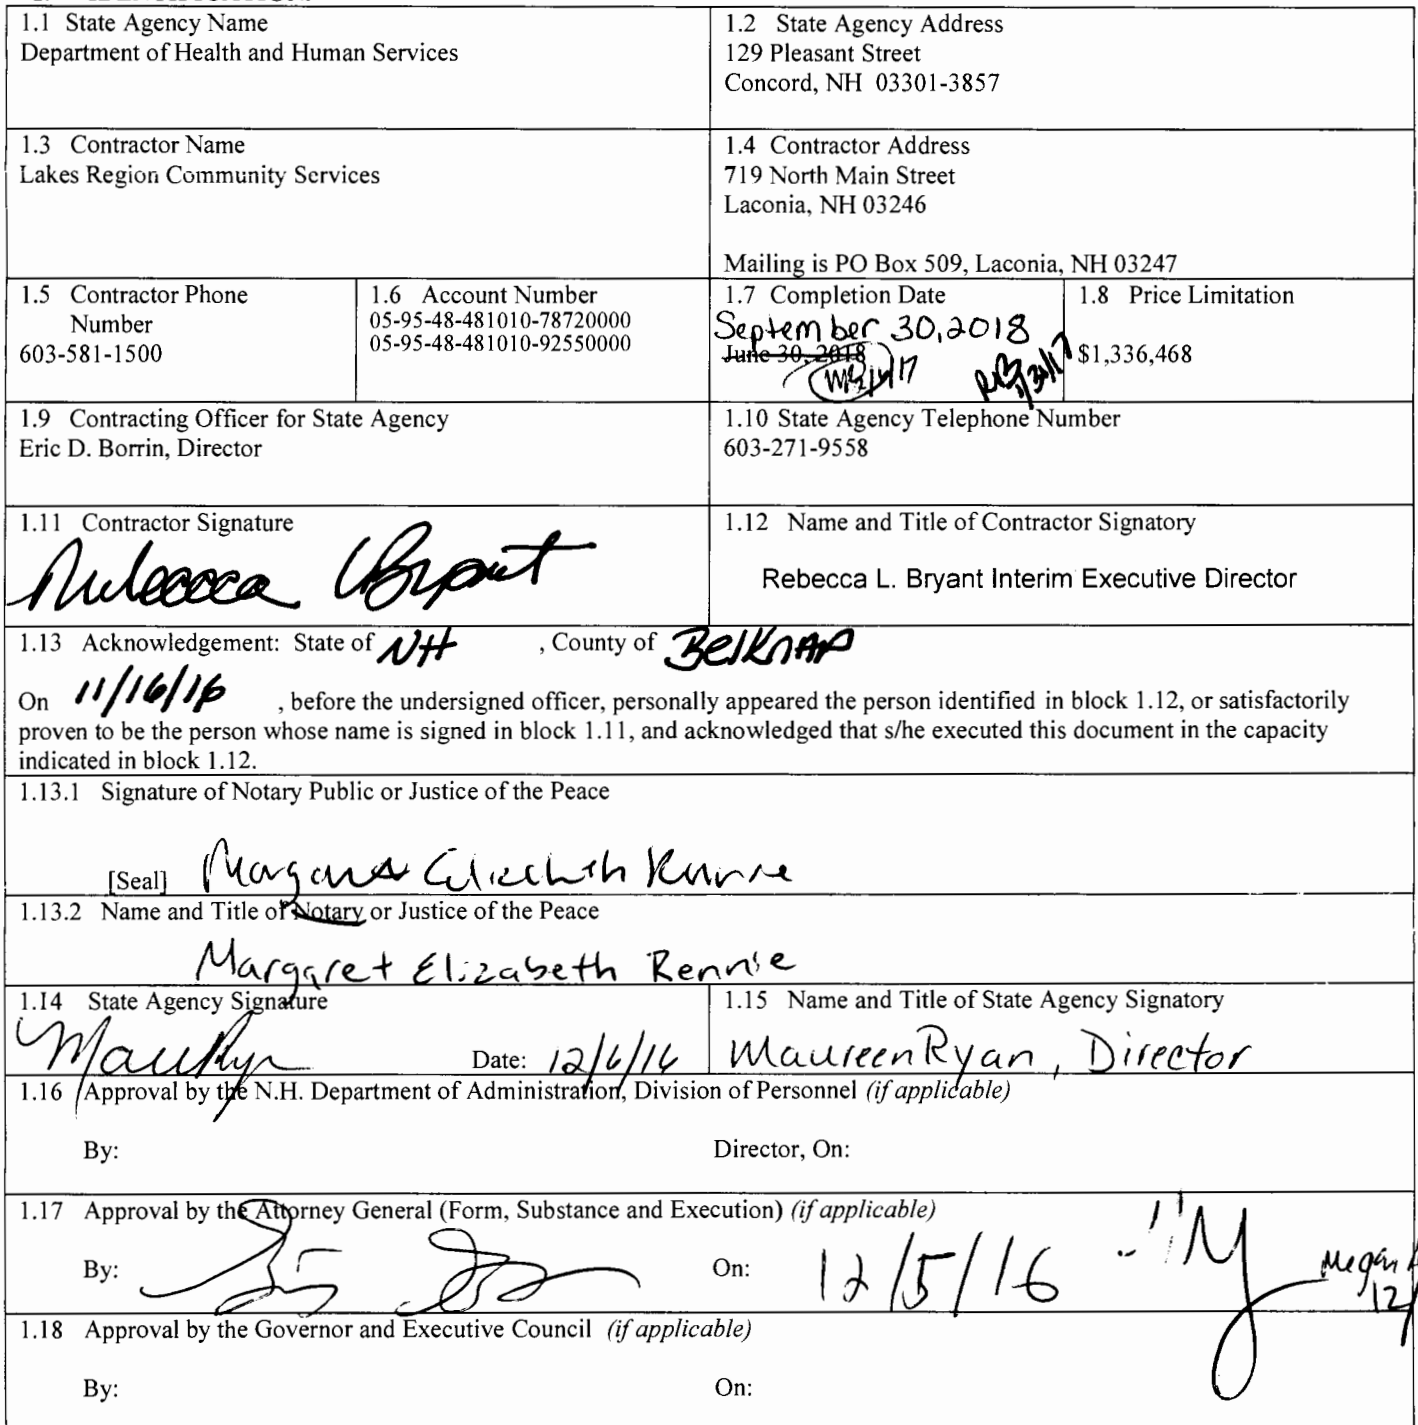 1.1 State Agency Name
Department of Health and Human Services
1.2 State Agency Address
129 Pleasant Street
Concord, NH 03301-3857
1.3 Contractor Name
Lakes Region Community Services
1.4 Contractor Address
719 North Main Street
Laconia, NH 03246
Mailing is PO Box 509, Laconia, NH 03247
1.5 Contractor Phone
Number
603-581-1500
1.6 Account Number
05-95-48-481010-78720000
05-95-48-481010-92550000
1.7 Completion Date
September 30, 2018
June 30, 2018
1.8 Price Limitation
$1,336,468
1.9 Contracting Officer for State Agency
Eric D. Borrin, Director
1.10 State Agency Telephone Number
603-271-9558
1.11 Contractor Signature
Rebecca Bryant
1.12 Name and Title of Contractor Signatory
Rebecca L. Bryant Interim Executive Director
1.13 Acknowledgement: State of NH , County of Belknap
On 11/16/16 , before the undersigned officer, personally appeared the person identified in block 1.12, or satisfactorily
proven to be the person whose name is signed in block 1.11, and acknowledged that s/he executed this document in the capacity
indicated in block 1.12.
1.13.1 Signature of Notary Public or Justice of the Peace
[Seal] Margaret Elizabeth Rennie
1.13.2 Name and Title of Notary or Justice of the Peace
Margaret Elizabeth Rennie
1.14 State Agency Signature
Date: 12/6/16
1.15 Name and Title of State Agency Signatory
Maureen Ryan, Director
1.16 Approval by the N.H. Department of Administration, Division of Personnel (if applicable)
By: Director, On:
1.17 Approval by the Attorney General (Form, Substance and Execution) (if applicable)
By: On: 12/5/16
Megan
12/
1.18 Approval by the Governor and Executive Council (if applicable)
By: On: